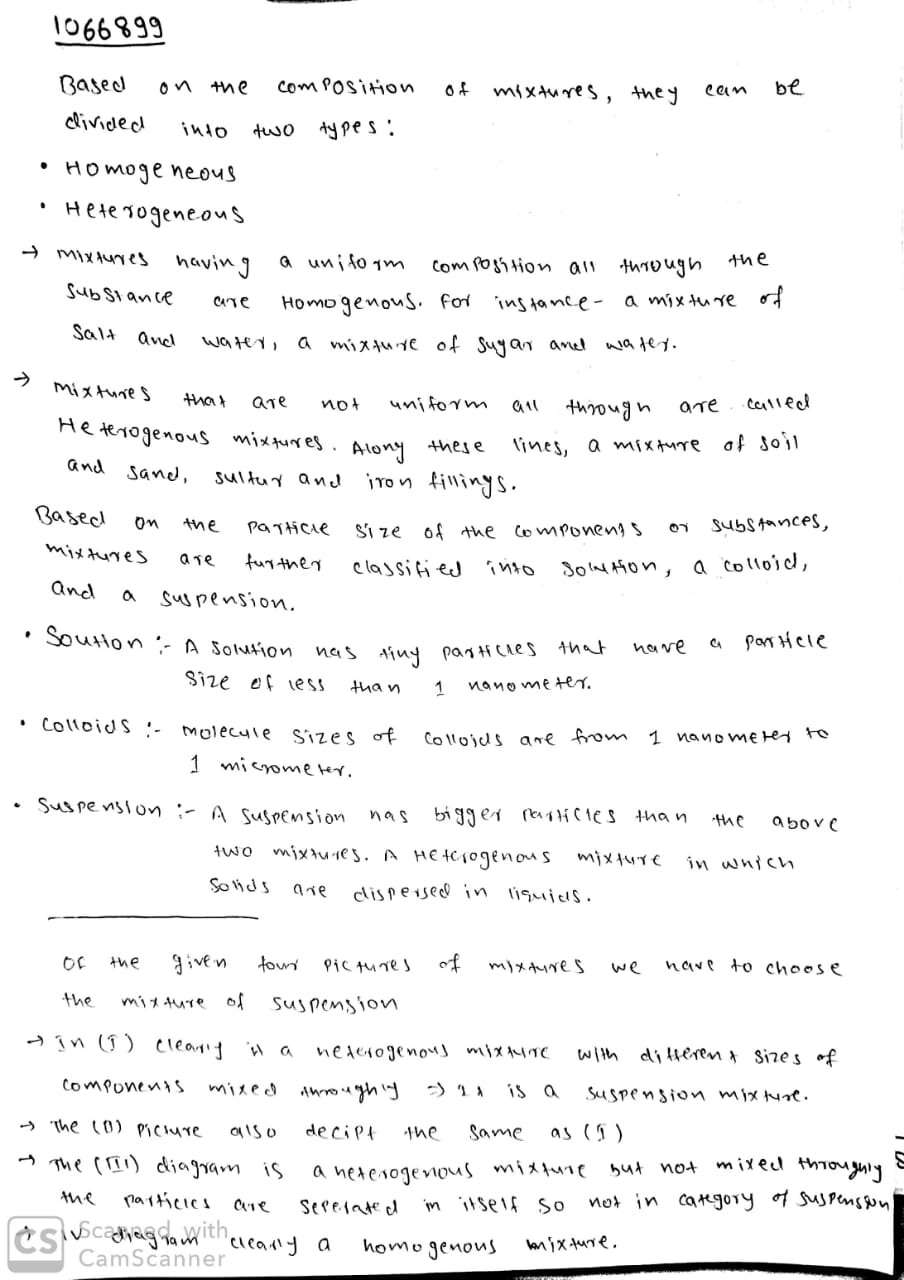 1066899
Based on the composition of mixtures, they can be
divided into two types:
• Homogeneous
• Heterogeneous
→ Mixtures having a uniform composition all through the
substance are Homogenous. For instance- a mixture of
Salt and water, a mixture of sugar and water.
→ Mixtures that are not uniform all through are called
Heterogenous mixtures. Along these lines, a mixture of soil
and sand, sulfur and iron fillings.
Based on the particle size of the components or substances,
mixtures are further classified into solution, a colloid,
and a suspension.
• Soution :- A solution has tiny particles that have a particle
size of less than 1 nanometer.
• Colloids :- molecule sizes of colloids are from 1 nanometer to
1 micrometer.
• Suspension :- A suspension has bigger particles than the above
two mixtures. A Heterogenous mixture in which
solids are dispersed in liquids.
Of the given four pictures of mixtures we have to choose
the mixture of suspension
→ In (I) clearly is a heterogenous mixture with different sizes of
components mixed throughly => It is a suspension mixture.
→ The (II) picture also decipt the same as (I)
→ The (III) diagram is a heterogenous mixture but not mixed throughly
the particles are seperated in itself so not in category of suspension
→ iv diagram clearly a homogenous mixture.
CS Scanned with
CamScanner